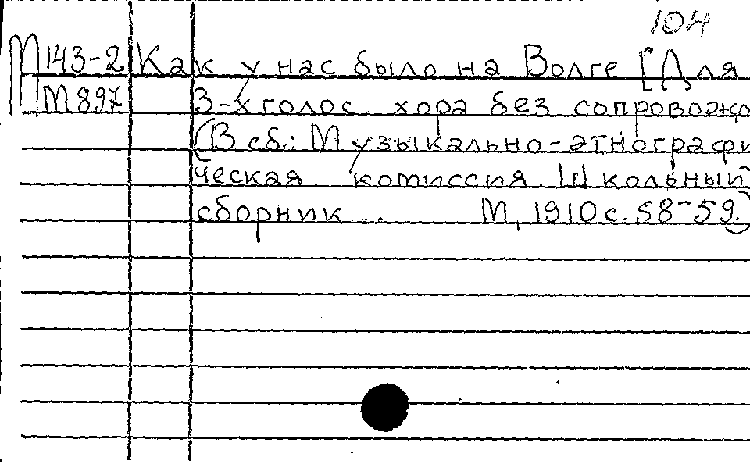 104
М143-2 Как у нас было на Волге [Для
М897 3-х голос. хора без сопровожд
(В сб.: Музыкально-этнографи
ческая комиссия. Школьный
сборник .. М, 1910 с. 58-59.)